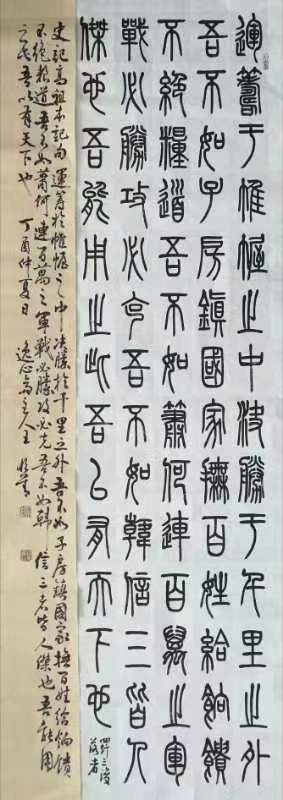 運籌于帷幄之中決勝于千里之外
吾不如子房鎮國家撫百姓給餉饋
不絕糧道吾不如蕭何連百萬之軍
戰必勝攻必克吾不如韓信三皆人
傑也吾能用之此吾以有天下也
四行三後落者
史記高祖本記句 運籌於帷幄之中決勝於千里之外吾不如子房鎮國家撫百姓給餉饋
不絕糧道吾不如蕭何連百萬之軍戰必勝攻必克吾不如韓信三者皆人傑也吾能用
之此吾以有天下也 丁酉仲夏日 主人王